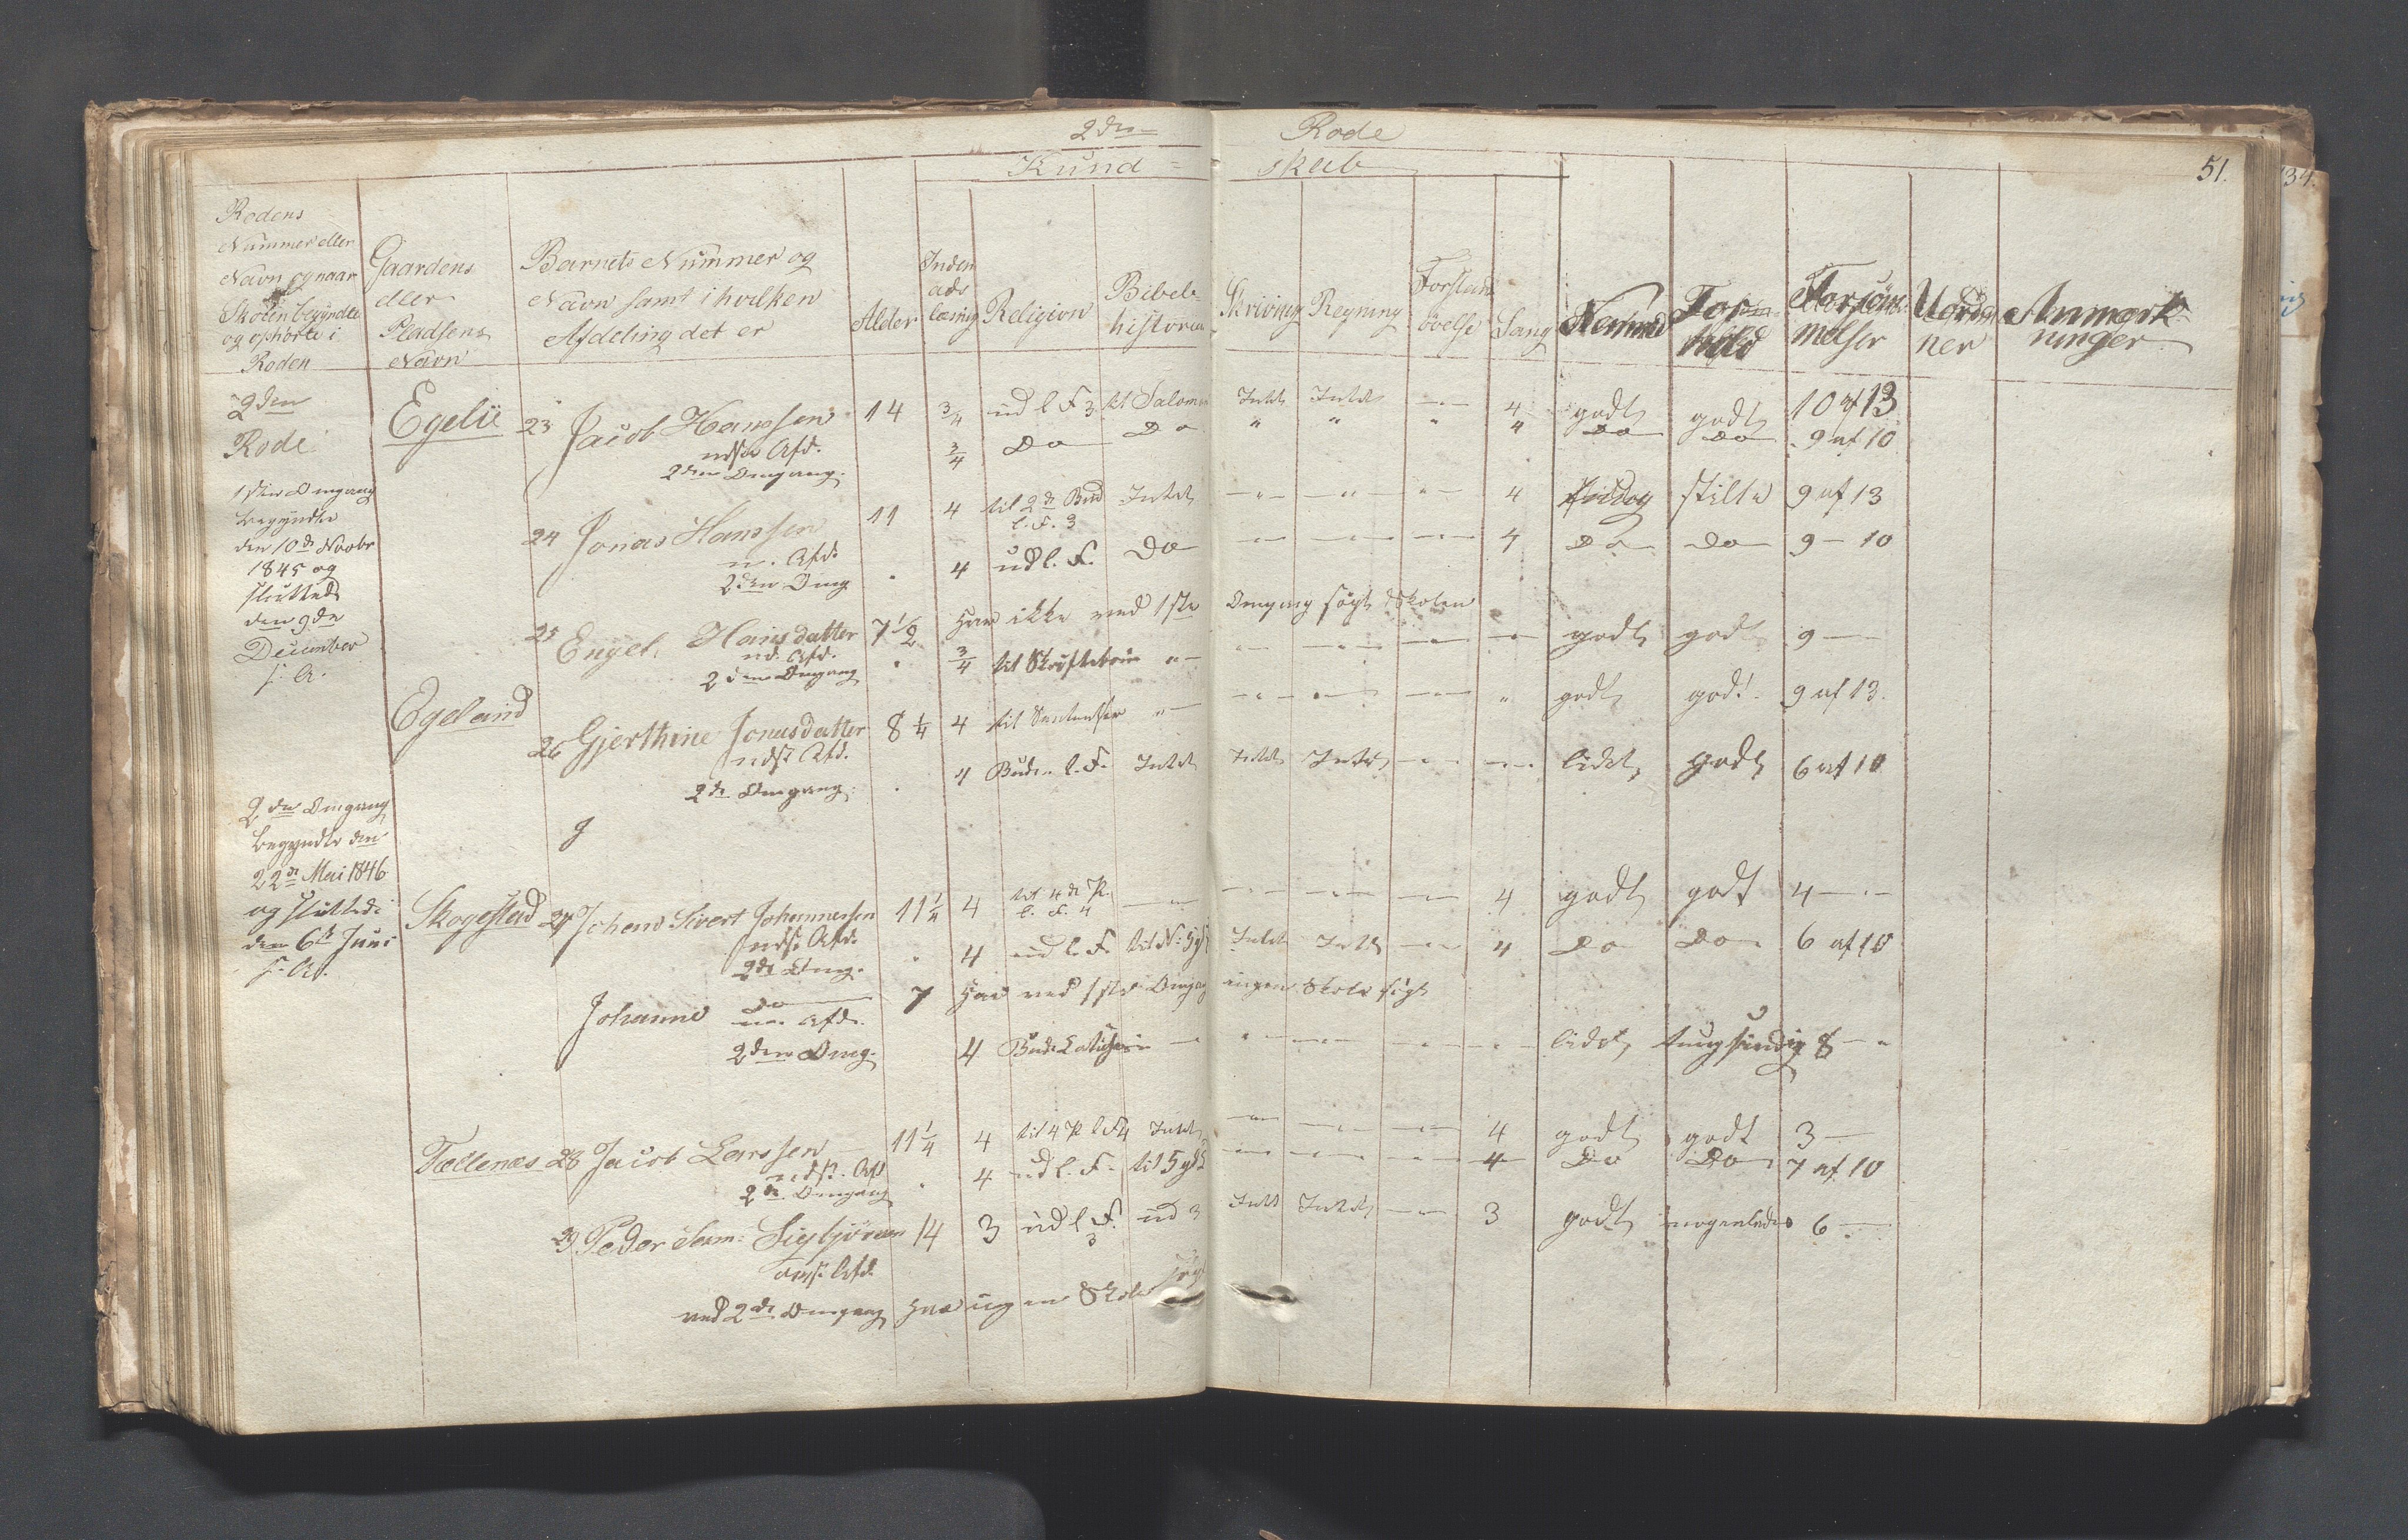 2den Rode
Kund= skab
51.
Rodens
Nummer eller
Navn og naar
Skolen begyndte
og ophørte i
Roden
Gaardens
eller
Pladsens
Navn
Barnets Nummer og
Navn samt i hvilken
Afdeling det er
Alder
Inden
ads
læsning
Religion
Bibel-
historie
Skrivning
Regning
Forstands
øvelse
Sang
Nemme
For-
hold
Forsøm-
melser
Uorde
ner
Anmærk-
ninger
2den
Rode
1ste Omgang
begyndte
den 10de Novbr
1845 og
sluttede
den 9de
December
s. A.
2den Omgang
begyndte den
22de Mai 1846
og sluttede
den 6te Juni
s. A.
Egelie 23 Jacob Hanssen 14 3/4 ud l F 3 til Salomon Intet Intet 4 godt godt 10 af 13
ndste Afd. 3/4 Do Do " " " 4 Do Do 9 af 10
2den Omgang.
24 Jonas Hanssen 11 4 til 2de Bud Intet 4 stille 9 af 13
l. F. 3
n. Afd. 4 ud l. F. Do 4 Do Do 9 - 10
2den Omg
25 Engel Hansdatter 7 1/2 har ikke ved 1ste Omgang søgt Skolen
nd. Afd. 3/4 til godt godt 9
2den Omgang
Egeland
26 Gjerthine Jonasdatter 8 1/4 4 til godt godt. 9 af 13.
ndste Afd.
2de Omgang. 4 Bud. l. F. Intet Intet Intet lidet godt 6 af 10
Skogestad 27 Johan Sivert Johannessen 11 1/4 4 til 4de P. 4 godt godt 4
l. F. 4
ndste Afd. 4 ud l. F. Intet Intet 4 Do Do 6 af 10
2de Omg.
Johanne Do 7 har ved 1ste Omgang ingen Skole søgt
n. Afd.
2den Omg. 4 lidet tungsindig 8
Tællenæs 28 Jacob Larssen 11 1/4 4 til 4 P l F 4 Intet 4 godt godt 3
ndste Afd 4 ud l. F. 4 Do Do 7 af 10
2de Omgang
29 Peder Sam: Sigbjørnsen 14 3 ud l F. ud 3 Intet Intet 3 godt nogenledes 6
3
Afd.
ved 2de Omgang har ingen Skole søgt